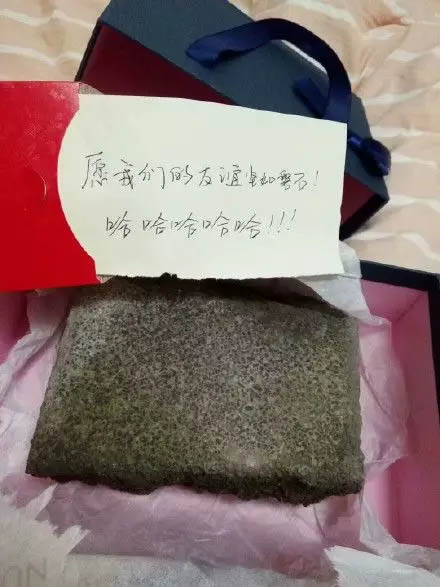 愿我们的友谊坚如磐石!
哈哈哈哈哈!!!